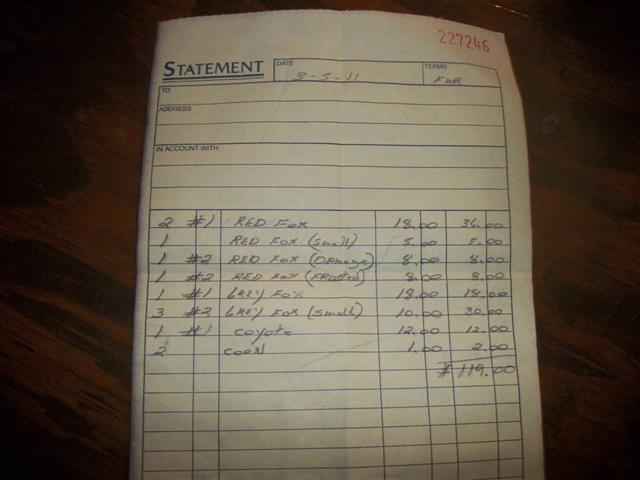 227246
STATEMENT DATE 3-5-11 TERMS FUR
TO
ADDRESS
IN ACCOUNT WITH
2 #1 RED FOX 18.00 36.00
1 RED FOX (Small) 5.00 5.00
1 #2 RED FOX (DAmage) 8.00 8.00
1 #2 RED FOX (FROSted) 8.00 8.00
1 #1 GREY FOX 18.00 18.00
3 #2 GREY FOX (Small) 10.00 30.00
1 #1 COYOte 12.00 12.00
2 COON 1.00 2.00
$119.00